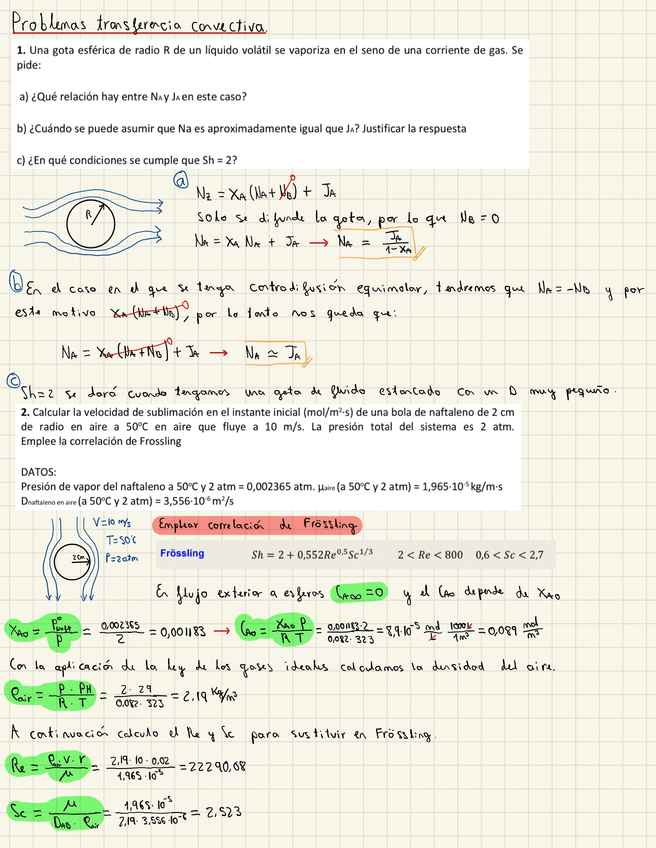 Problemas transferencia convectiva.
1. Una gota esférica de radio R de un líquido volátil se vaporiza en el seno de una corriente de gas. Se
pide:
a) ¿Qué relación hay entre NA y JA en este caso?
b) ¿Cuándo se puede asumir que Na es aproximadamente igual que JA? Justificar la respuesta
c) ¿En qué condiciones se cumple que Sh = 2?
R
a
Nz = xA (NA + NB) + JA
0
Solo se difunde la gota, por lo que NB = 0
NA = xA NA + JA → NA = JA / 1-xA
b En el caso en el que se tenga contradifusión equimolar, tendremos que NA = -NB y por
este motivo xA (NA + NB) 0, por lo tanto nos queda que:
NA = xA (NA + NB) 0 + JA → NA ≃ JA
c Sh = 2 se dará cuando tengamos una gota de fluido estancado con un D muy pequeño.
2. Calcular la velocidad de sublimación en el instante inicial (mol/m²·s) de una bola de naftaleno de 2 cm
de radio en aire a 50ºC en aire que fluye a 10 m/s. La presión total del sistema es 2 atm.
Emplee la correlación de Frossling
DATOS:
Presión de vapor del naftaleno a 50ºC y 2 atm = 0,002365 atm. μaire (a 50ºC y 2 atm) = 1,965·10⁻⁵ kg/m·s
Dnaftaleno en aire (a 50ºC y 2 atm) = 3,556·10⁻⁶ m²/s
V=10 m/s
T=50ºC
P=2atm
2cm
Emplear correlación de Frössling
Frössling Sh = 2 + 0,552Re^0,5 Sc^1/3 2 < Re < 800 0,6 < Sc < 2,7
En flujo exterior a esferas CA∞ = 0 y el CA0 depende de XA0
XA0 = P°naft / P = 0,002365 / 2 = 0,001183 → CA0 = XA0 P / R T = 0,001183·2 / 0,082·323 = 8,9·10⁻⁵ mol / L 1000L / 1m³ = 0,089 mol / m³
Con la aplicación de la ley de los gases ideales calculamos la densidad del aire.
ρair = P · PM / R · T = 2 · 29 / 0,082 · 323 = 2,19 kg/m³
A continuación calculo el Re y Sc para sustituir en Frössling.
Re = ρair · V · r / μ = 2,19 · 10 · 0,02 / 1,965 · 10⁻⁵ = 22290,08
Sc = μ / DAB · ρair = 1,965 · 10⁻⁵ / 2,19 · 3,556 · 10⁻⁶ = 2,523